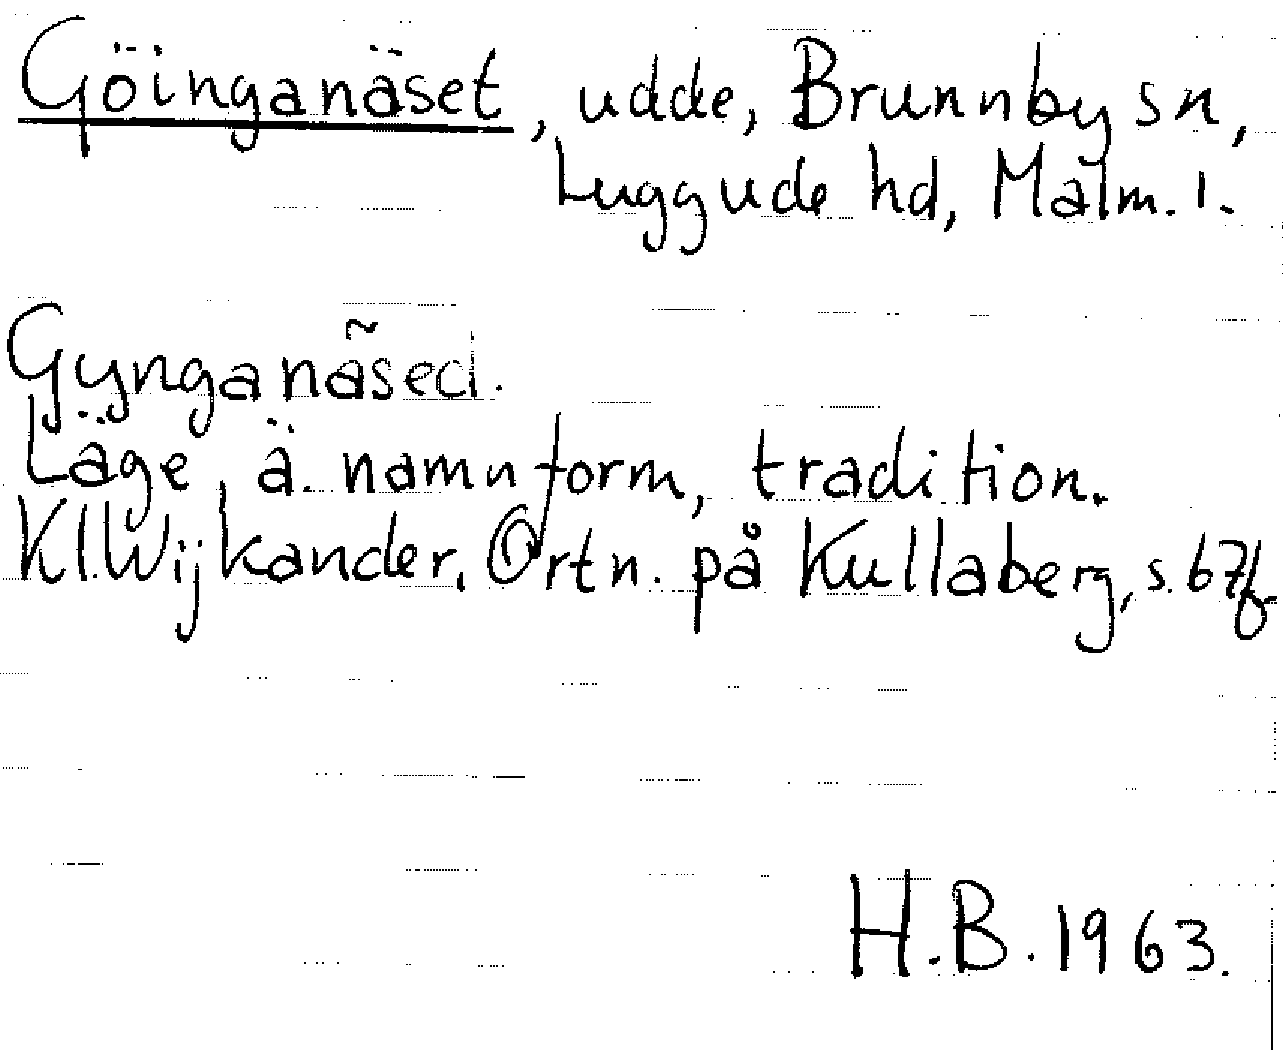 Göinganäset, udde, Brunnby sn,
Luggude hd, Malm. l.
Gynganäsed.
Läge, ä. namnform, tradition.
Kl. Wijkander, Ortn. på Kullaberg, s. 67f.
H.B. 1963.